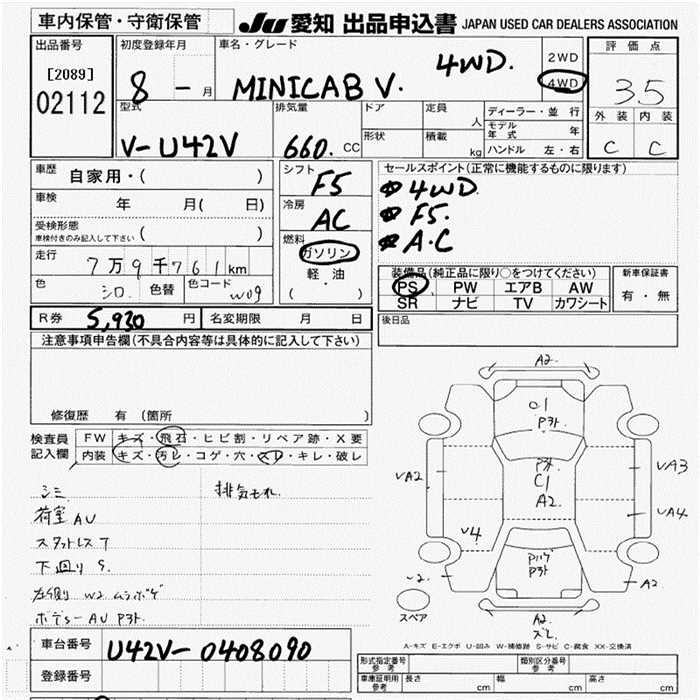 車内保管・守衛保管
JU 愛知 出品申込書 JAPAN USED CAR DEALERS ASSOCIATION
出品番号
[2089]
02112
初度登録年月
8 - 月
車名・グレード
MINICAB V. 4WD.
2WD
4WD
評価点
3.5
外装 内装
C C
型式
V-U42V
排気量
660. CC
ドア
形状
定員 人
積載 kg
ディーラー・並行
モデル年式 年
ハンドル 左・右
車歴 自家用・( )
車検 年 月( 日)
受検形態
車検付きのみ記入して下さい ( )
走行 7万9千761km
色 シロ. 色替 色コード W09
シフト F5
冷房 AC
燃料
ガソリン
軽・油
( ・ )
セールスポイント(正常に機能するものに限ります)
4WD
F5.
A.C
装備品(純正品に限り○をつけてください)
PS PW エアB AW
SR ナビ TV カワシート
新車保証書
有・無
R券 5,930 円 名変期限 月 日
後日品
注意事項申告欄(不具合内容等は具体的に記入して下さい)
修復歴 有(箇所 )
検査員記入欄
FW キズ・飛石・ヒビ割・リペア跡・X要
内装 キズ・汚レ・コゲ・穴・スレ・キレ・破レ
シミ 排気もれ.
荷室 AU
スタットレス 7
下回り S.
W2 ムラボゲ
ボデー AU
A2.
C1
A2
A2
A3
A4
4
A2
A2
スペア
A-キズ E-エクボ U-凹み W-補修跡 S-サビ C-腐食 XX-交換済
車台番号 U42V-0408090
登録番号
形式指定番号 参考
類別区分番号 参考
車庫証明用 参考 長さ cm 幅 cm 高さ cm